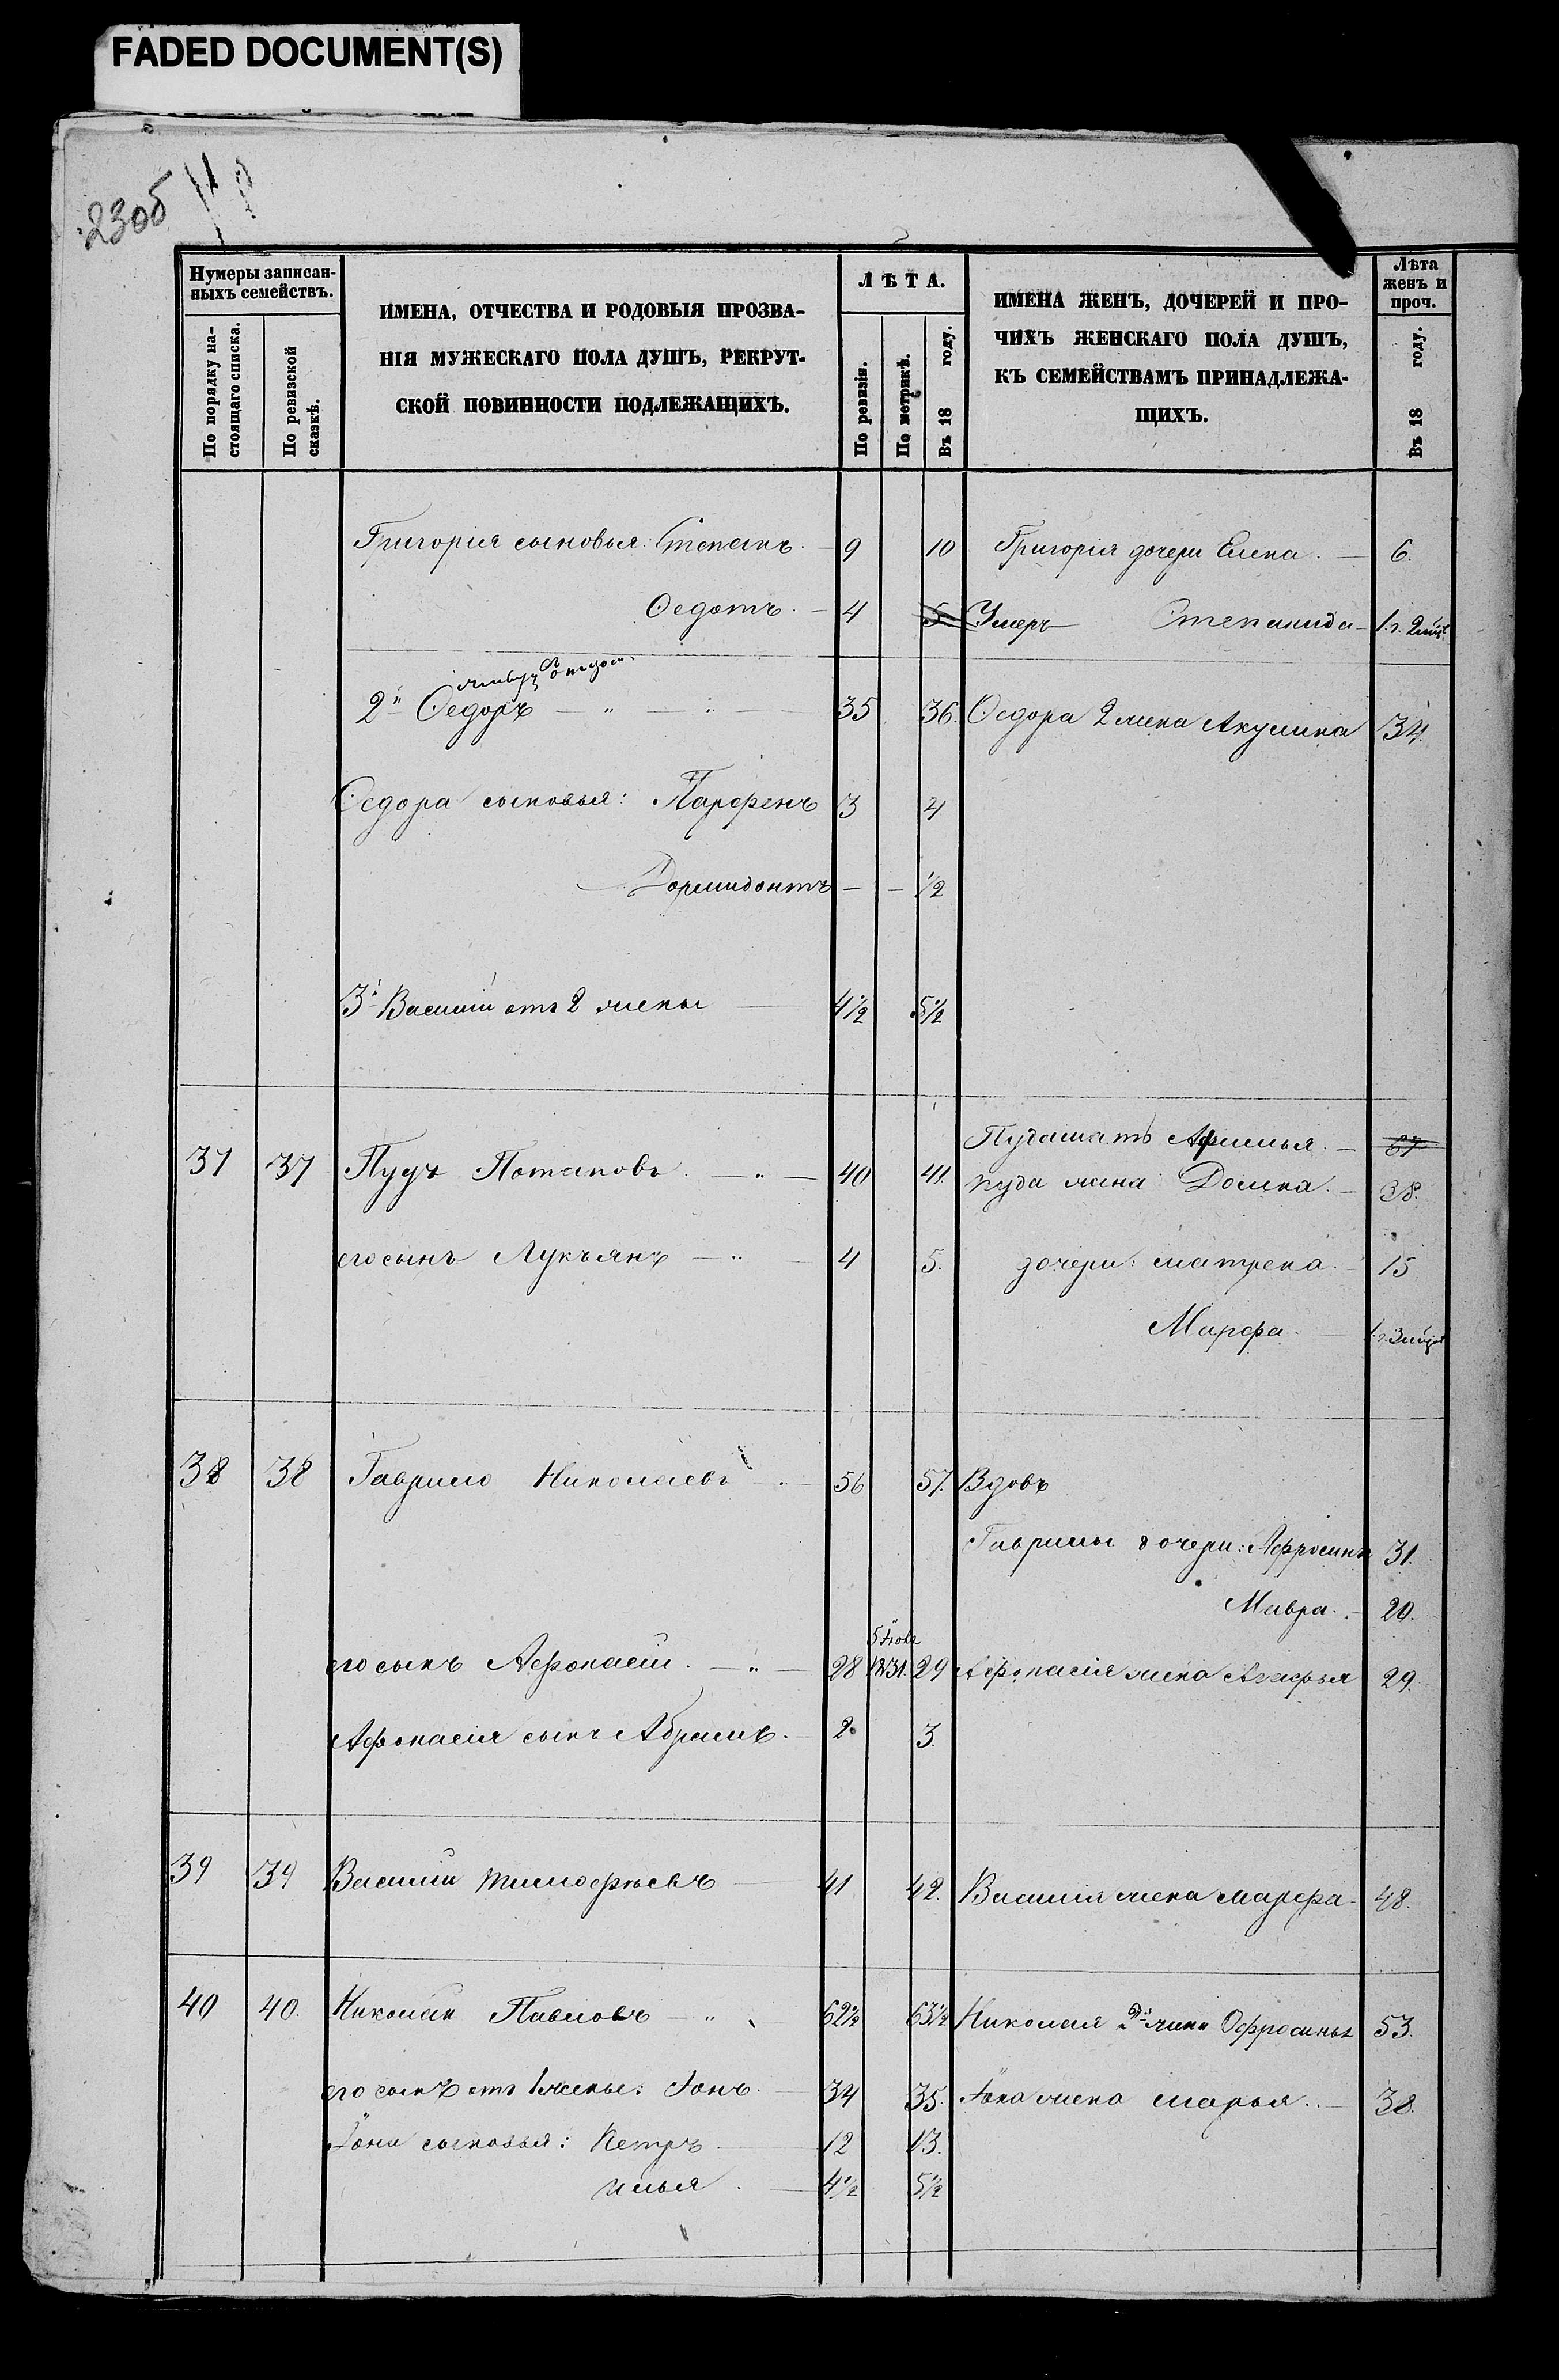 FADED DOCUMENT(S)
23об
Нумеры записан-
ныхъ семействъ.
По порядку на-
стоящаго списка.
По ревизской
сказкѣ.
ИМЕНА, ОТЧЕСТВА И РОДОВЫЯ ПРОЗВА-
НІЯ МУЖЕСКАГО ПОЛА ДУШЪ, РЕКРУТ-
СКОЙ ПОВИННОСТИ ПОДЛЕЖАЩИХЪ.
ЛѢТА.
По ревизіи.
По метрикѣ.
Въ 18 году.
ИМЕНА ЖЕНЪ, ДОЧЕРЕЙ И ПРО-
ЧИХЪ ЖЕНСКАГО ПОЛА ДУШЪ,
КЪ СЕМЕЙСТВАМЪ ПРИНАДЛЕЖА-
ЩИХЪ.
Лѣта
женъ и
проч.
Въ 18 году.
Григорія сыновья: Степанъ. 9 10 Григорія дочери Елена. 6.
Ѳедотъ. 4 5 Умеръ Степанида 1 г. 2 мѣс
2й Ѳедоръ 35 36. Ѳедора 2 жена Акулина 34.
Ѳедора сыновья: Парфенъ 3 4
Дормидонтъ – – 1/2
3й Василій отъ 2 жены 4 1/2 5 1/2
Пуда мать Афимья. 67
37 37 Пудъ Потаповъ. 40 41. Пуда жена Домна. 38.
его сынъ Лукъянъ 4 5. дочери: Матрена. 15
Марфа. 1 г. 3 мѣс
38 38 Гаврило Николаевъ 56 57. Вдовъ
Гаврилы дочери: Афросинья 31.
Мавра. 20.
его сынъ Афонасій. 28 1831. 29 Афонасія жена Агафья 29.
Афонасія сынъ Абрамъ. 2 3.
39 39 Василій Тимофѣевъ 41 42. Василія жена Марфа 48.
40 40. Николай Павловъ 62 1/2 63 1/2 Николая 2я жена Офросинья 53.
его сынъ отъ 1 жены: Іонъ. 34 35. Іона жена Марья. 38.
Іона сыновья: Петръ 12 13.
Илья. 4 1/2 5 1/2